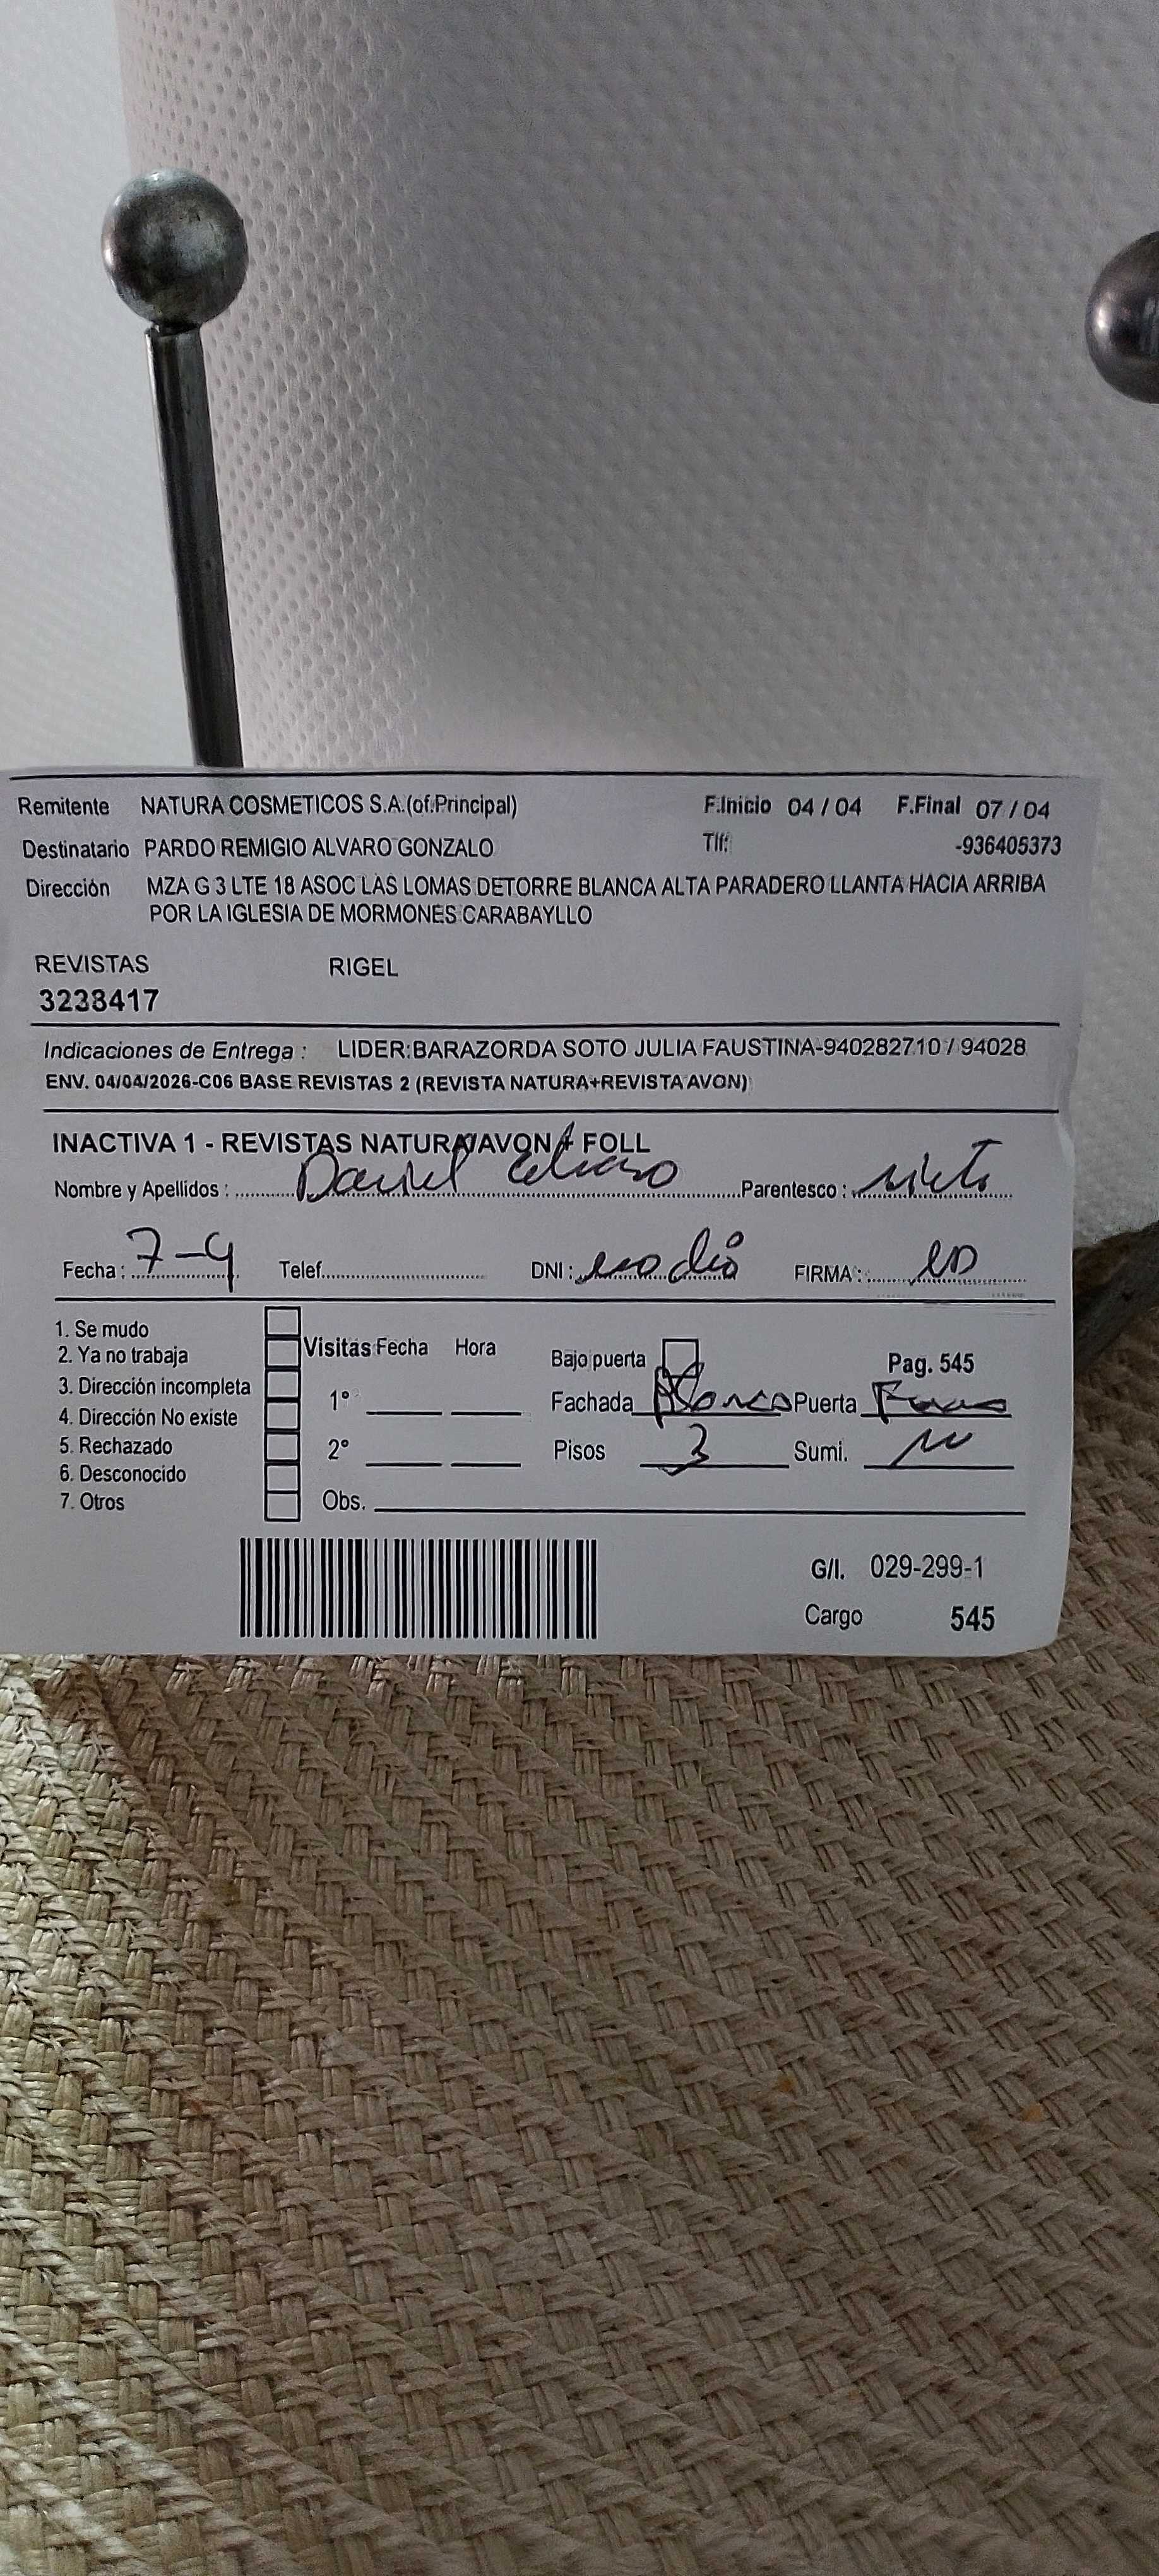 Remitente NATURA COSMETICOS S.A.(of.Principal) F.Inicio 04 / 04 F.Final 07 / 04
Destinatario PARDO REMIGIO ALVARO GONZALO Tlf: -936405373
Dirección MZA G 3 LTE 18 ASOC LAS LOMAS DETORRE BLANCA ALTA PARADERO LLANTA HACIA ARRIBA
POR LA IGLESIA DE MORMONES CARABAYLLO
REVISTAS RIGEL
3238417
Indicaciones de Entrega : LIDER:BARAZORDA SOTO JULIA FAUSTINA-940282710 / 94028
ENV. 04/04/2026-C06 BASE REVISTAS 2 (REVISTA NATURA+REVISTA AVON)
INACTIVA 1 - REVISTAS NATURA/AVON + FOLL
Nombre y Apellidos : Daniel Parentesco : nieto
Fecha : 7-4 Telef. DNI : no dio FIRMA :
1. Se mudo
2. Ya no trabaja
3. Dirección incompleta
4. Dirección No existe
5. Rechazado
6. Desconocido
7. Otros
Visitas Fecha Hora
1°
2°
Obs.
Bajo puerta Pag. 545
Fachada Blanco Puerta
Pisos 3 Sumi.
G/I. 029-299-1
Cargo 545